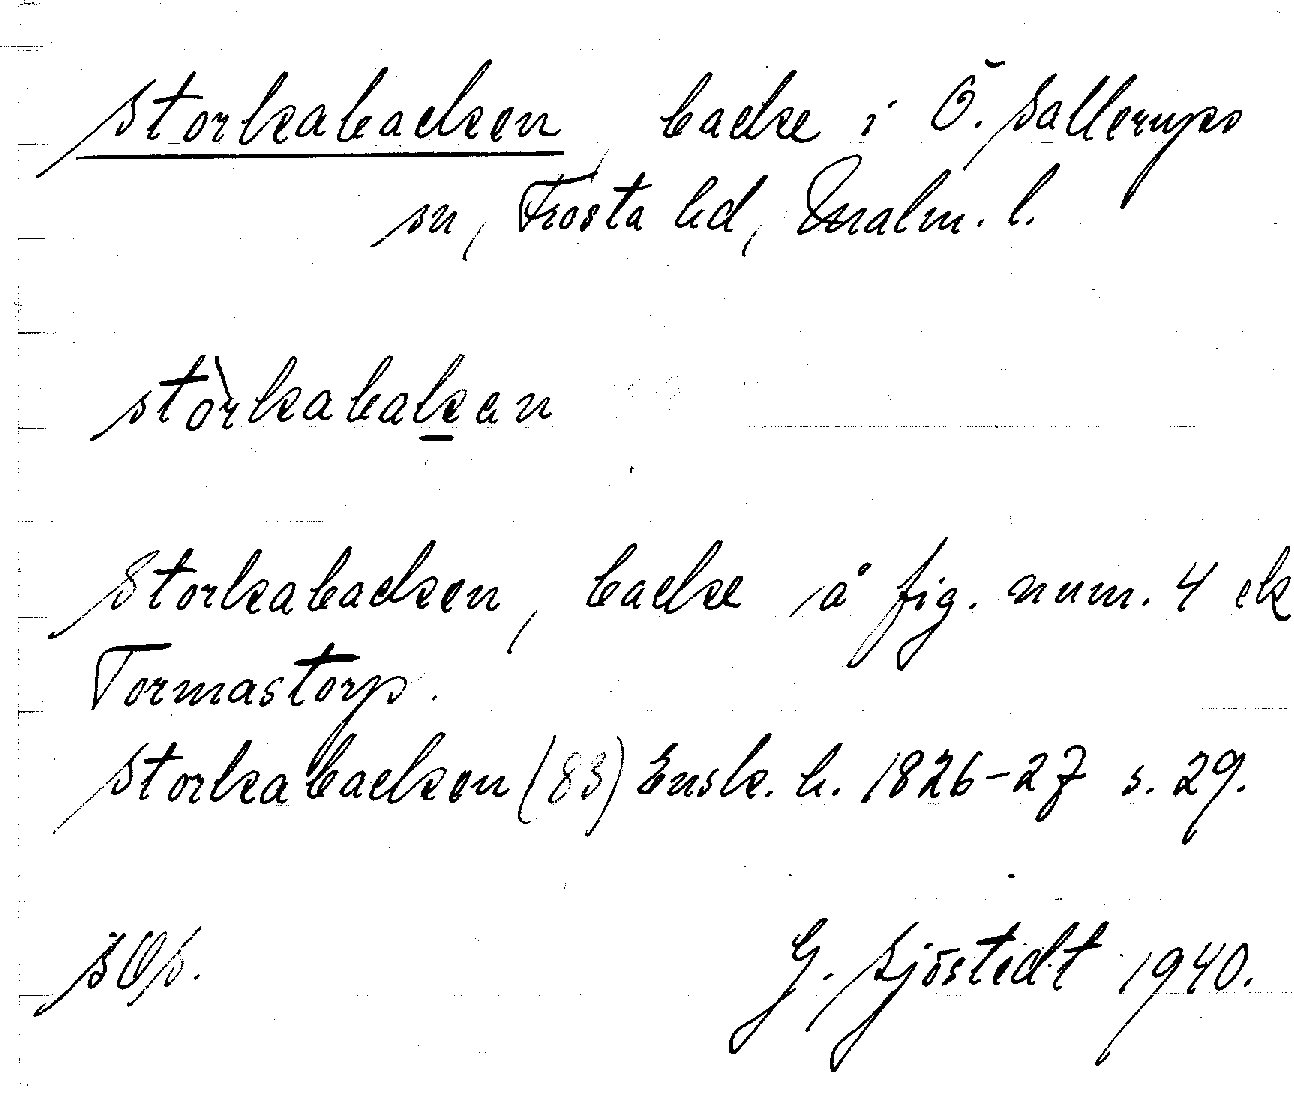 Storkabacken backe i Ö. Sallerups
sn, Frosta hd, Malm. l.
stòrkabakan
Storkabacken, backe å fig. num. 4 ek
Tormastorp.
Storkabacken (83) Ensk. h. 1826-27 s. 29.
G. Sjöstedt 1940.